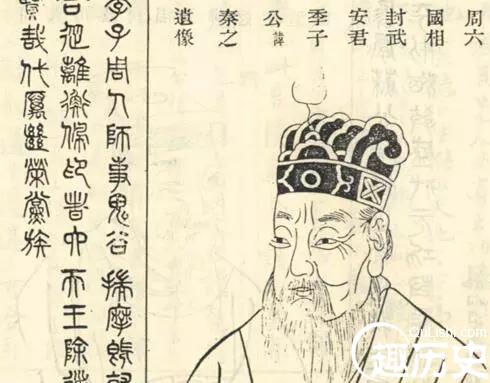 周六
國相
封武
安君
季子
公諱
秦之
遺像
季子周人師事鬼谷揣摩
合從離衡佩印者六天王除道
賢哉代厲榮黨族
QuLiShi.com
趣历史